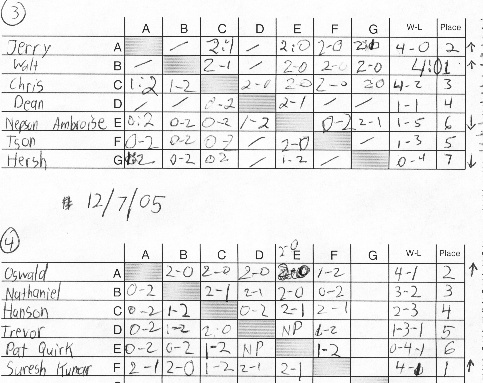 3
A B C D E F G W-L Place
Jerry A / 2:1 / 2:0 2-0 4-0 2 ↑
Walt B / 2-1 / 2-0 2-0 2-0 4:0 1 ↑
Chris C 1:2 1-2 2-0 2-0 2-0 20 4-2 3
Dean D / / 0-2 2-1 / / 1-1 4
Nepson Ambroise E 0:2 0-2 0-2 1-2 0-2 2-1 1-5 6 ↓
Tson F 0-2 0-2 0-2 / 2-0 / 1-3 5
Hersh G 0-2 02 / 1-2 / 0-4 7 ↓
12/7/05
4
A B C D E F G W-L Place
2-0
Oswald A 2-0 2-0 2-0 1-2 4-1 2 ↑
Nathaniel B 0-2 2-1 2-1 2-0 0-2 3-2 3
Hanson C 0-2 1-2 0-2 2-1 2-1 2-3 4
Trevor D 0-2 1-2 2:0 NP 1-2 1-3-1 5
Pat Quirk E 0-2 0-2 1-2 NP 1-2 0-4-1 6
Suresh Kumar F 2-1 2-0 1-2 2-1 2-1 4-1 1 ↑